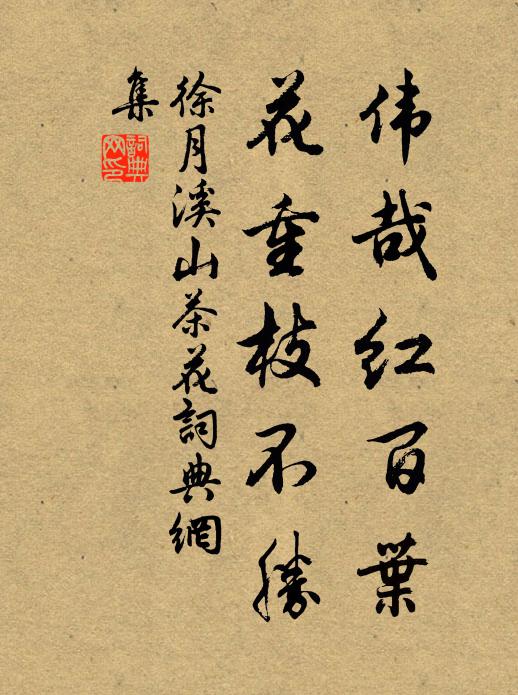 伟哉红百葉
花重枝不勝
徐月溪山茶花詞典網
集
詞典
网印